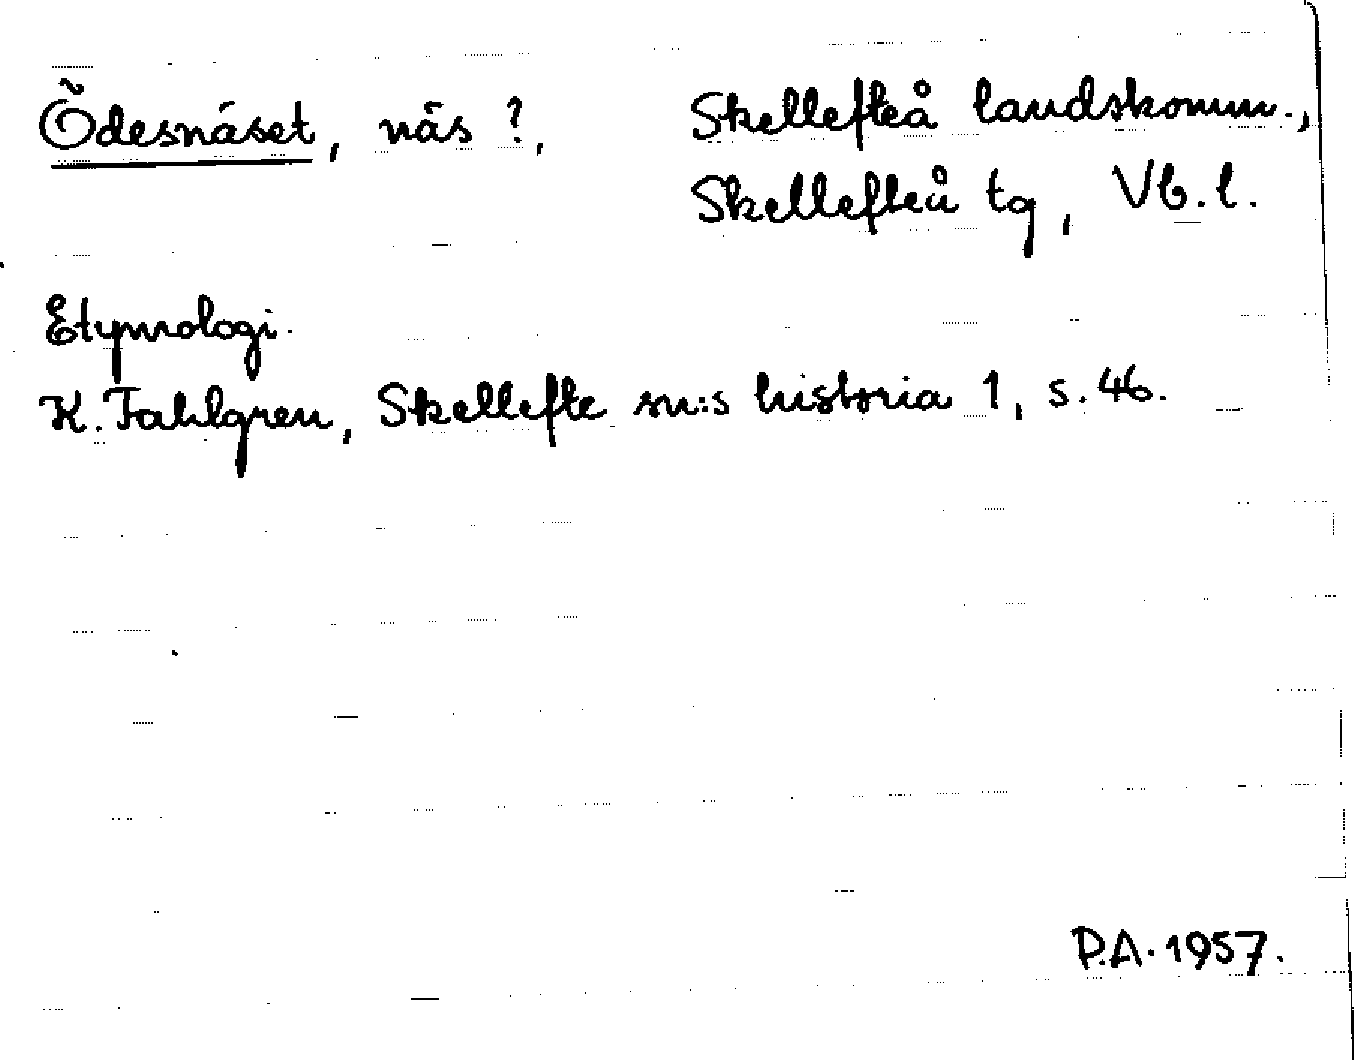 Ödesnäset, näs ?, Skellefteå landskomm.,
Skellefteå tg, Vb. l.
Etymologi.
K. Fahlgren, Skellefte sn:s historia 1, s. 46.
P.A. 1957.